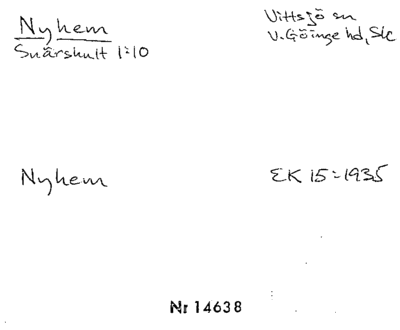 Nyhem
Snårshult 1:10
Vittsjö sn
V. Göinge hd, Sk
Nyhem
EK 15 = 1935
Nr 14638